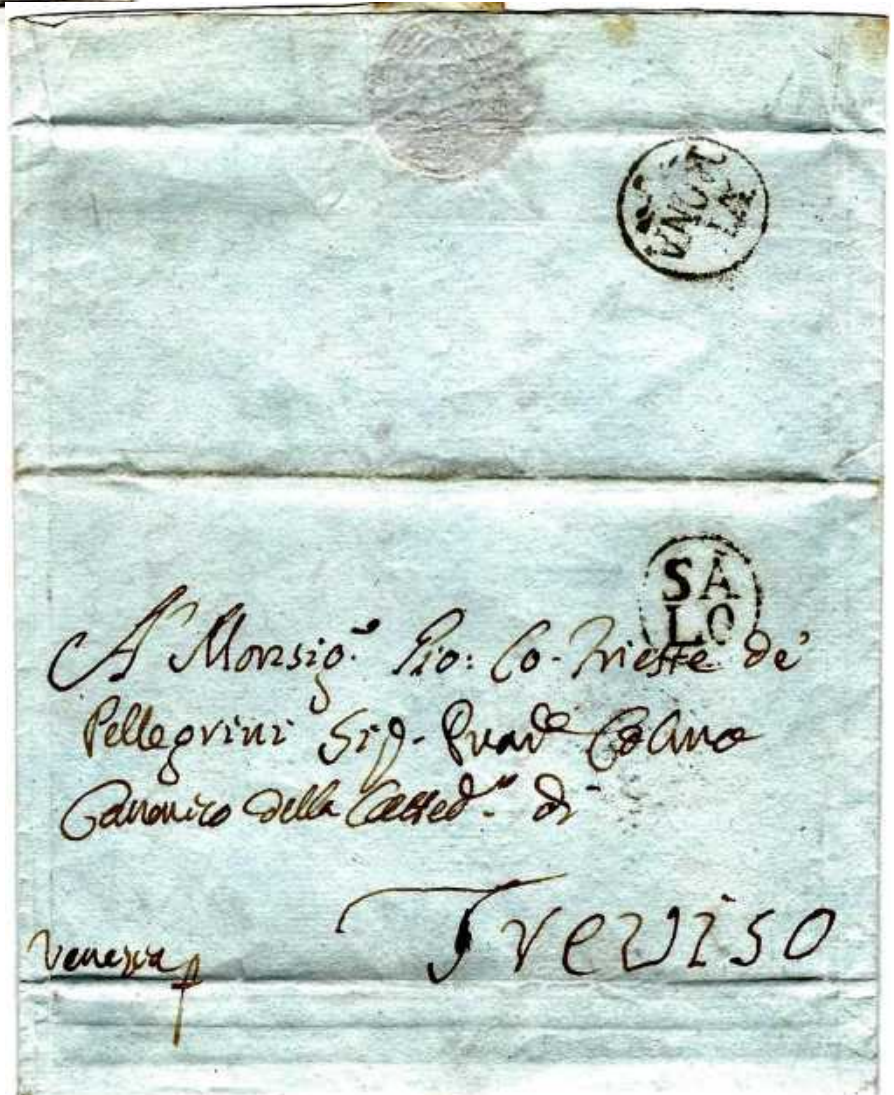 SA
LO
A Monsig.r Gio: Co- Trieste de'
Pellegrini Sig.
Canonico della Catted.le di
Treviso
Venezia p